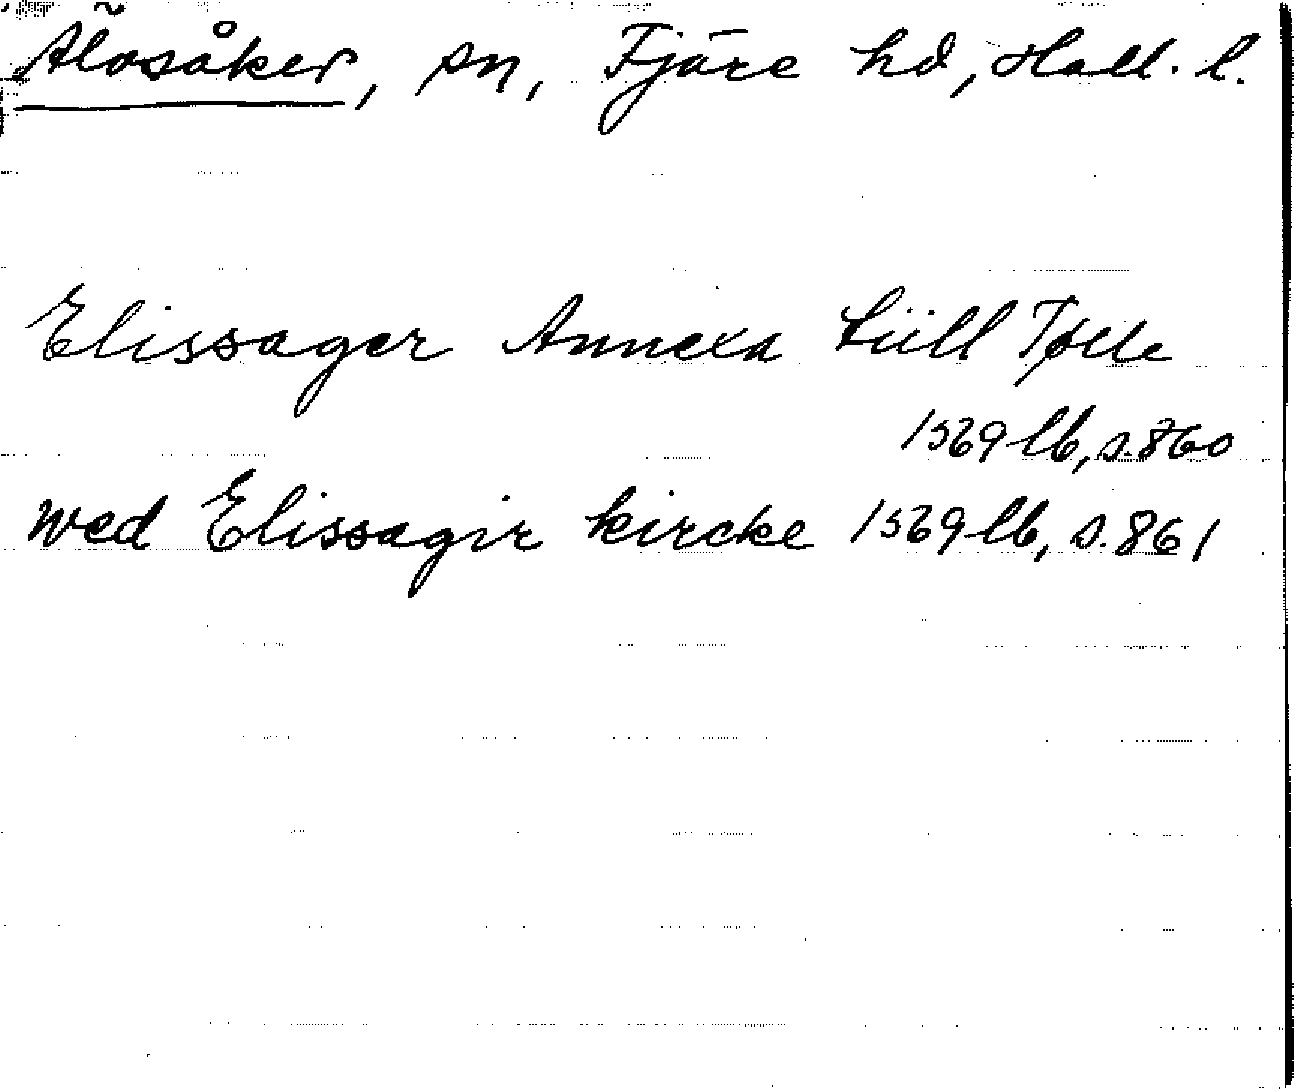 Älvsåker, sn, Fjäre hd, Hall. l.
Elissager Annexa tüll Tølle
1569 lb, s. 860
wed Elissagir kircke 1569 lb, s. 861